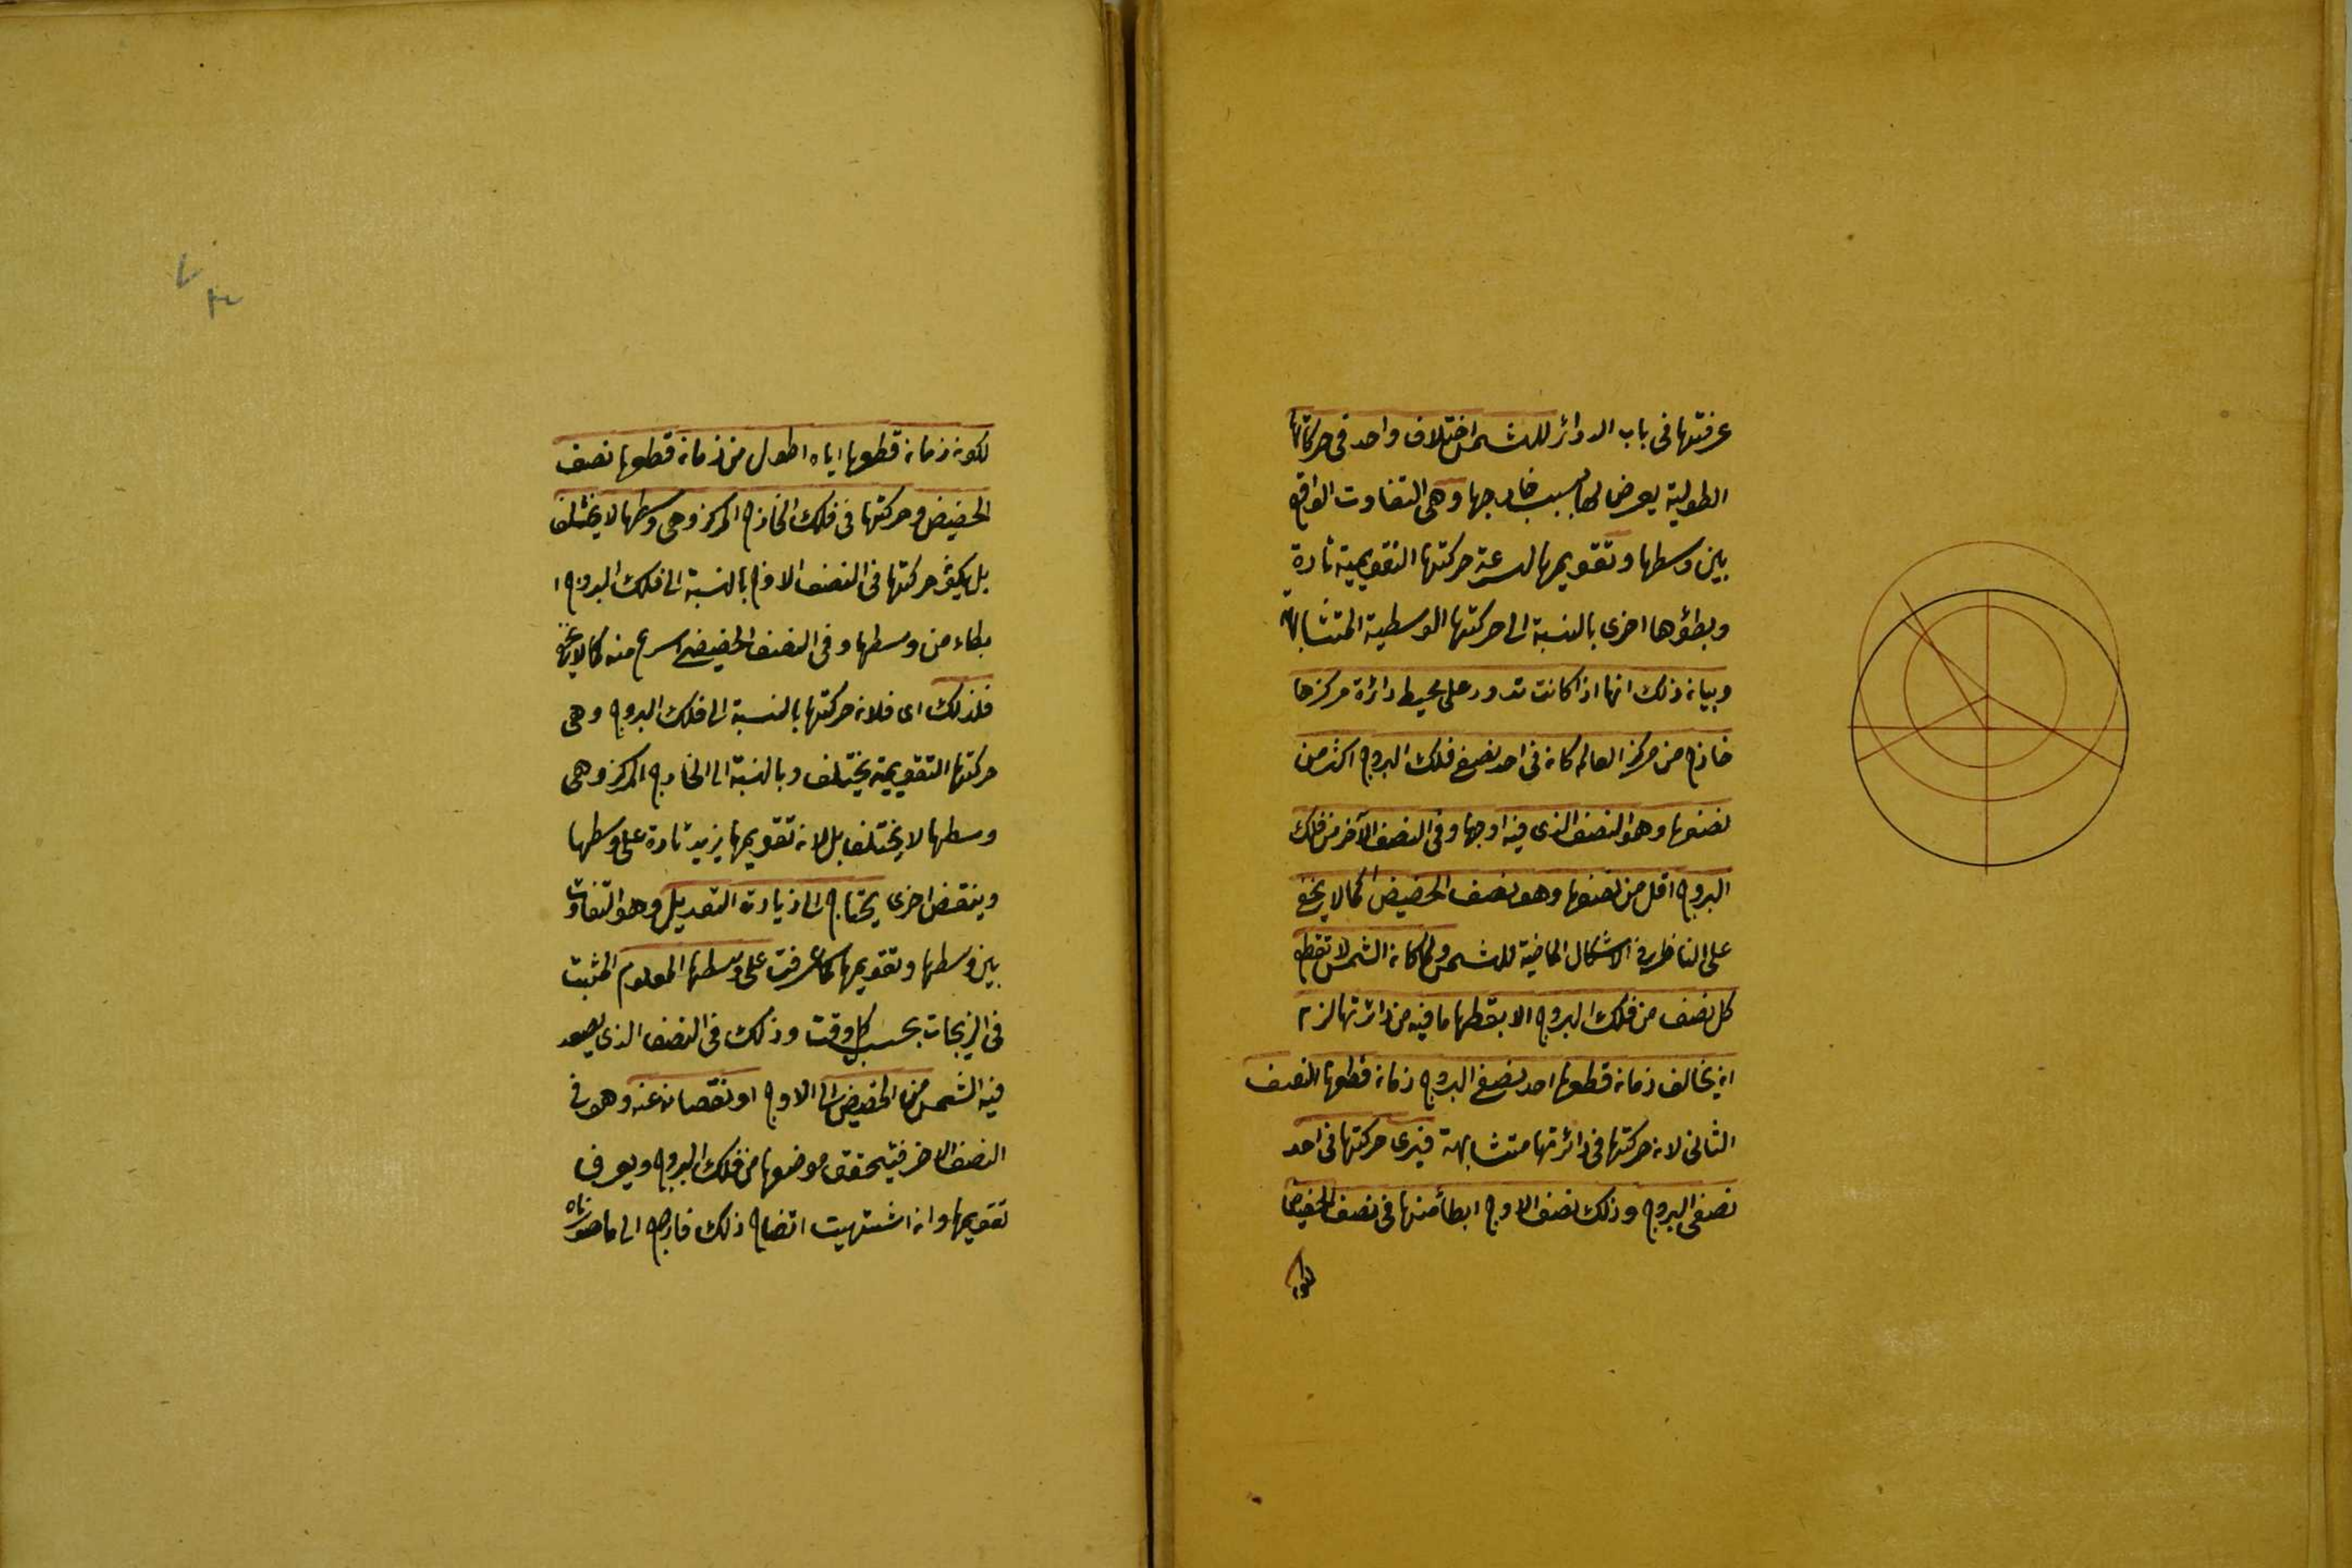 عرفتها فى باب الدوائر للشمس اختلاف واحد فى حركاتها
الطولية يعرض لها بسبب خارجها وهى التفاوت الواقع
بين وسطها وتقويمها لسرعة حركتها التقويمية تارة
وبطؤها اخرى بالنسبة الى حركتها الوسطية المتشابهة
وبيانه ذلك انها اذا كانت تدور على محيط دائرة مركزها
خارج من مركز العالم كان فى احد نصفى فلك البروج اكثر من
نصفها وهو النصف الذى فيه اوجها وفى النصف الآخر من فلك
البروج اقل من نصفها وهو نصف الحضيض كما لا يخفى
على الناظر فى الاشكال الماضية للشمس ولما كان الشمس لا تقطع
كل نصف من فلك البروج الا بقطعها ما فيه من دائرتها لزم
ان يخالف زمان قطعها احد نصفى البروج زمان قطعها النصف
الثانى لان حركتها فى دائرتها متشابهة فيرى حركتها فى احد
نصفى البروج وذلك نصف الاوج ابطأ منها فى نصف الحضيض
لكون زمان قطعها اياه اطول من زمان قطعها نصف
الحضيض وحركتها فى فلك الخارج المركز وهى وسطها لا يختلف
بل يكون حركتها فى النصف الاوج بالنسبة الى فلك البروج ا
بطاء من وسطها وفى النصف الحضيضى اسرع منه كما لا يخفى
فلذلك اى فلان حركتها بالنسبة الى فلك البروج وهى
حركتها التقويمية يختلف وبالنسبة الى الخارج المركز وهى
وسطها لا يختلف بل لان تقويمها يزيد تارة على وسطها
وينقص اخرى يحتاج الى زيادة التعديل وهو التفاوت
بين وسطها وتقويمها كما عرفت على وسطها المعلوم المثبت
فى الزيجات بحسب كل وقت وذلك فى النصف الذى يصعد
فيه الشمس من الحضيض الى الاوج او نقصانه عنه وهو فى
النصف الاخر فيتحقق موضعها من فلك البروج ويعرف
تقويمها وان اشتهيت اتضاح ذلك فارجع الى ما صورناه